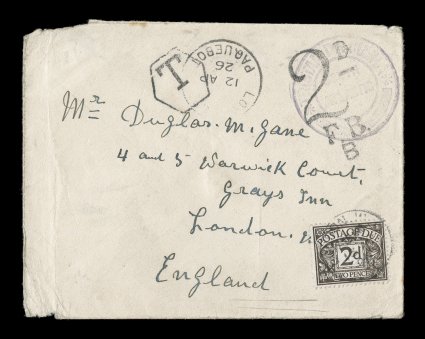 T
12 AP
26
PAQUEBOT
LO
2
D
F.B.
Mr Duglas. M. Gane
4 and 5 Warwick Court,
Grays Inn
London.
England
POSTAGE DUE
2d
TWO PENCE